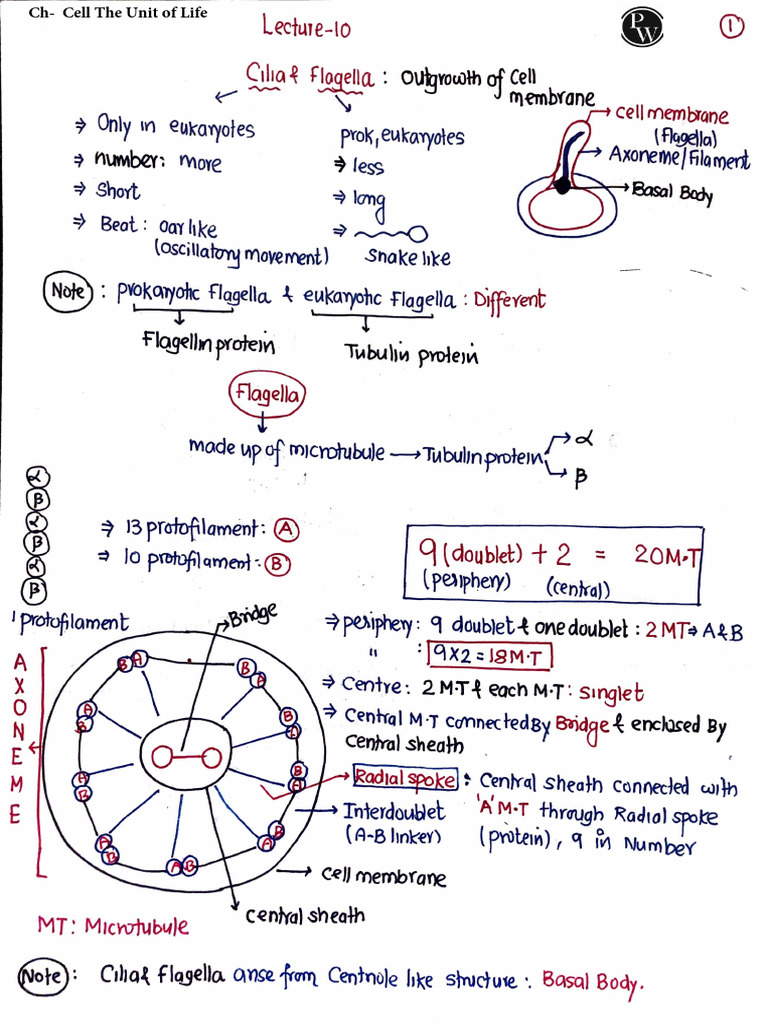 Ch- Cell The Unit of Life
Lecture-10
PW
1
Cilia & Flagella : Outgrowth of Cell membrane
⇒ Only in eukaryotes
⇒ number: more
⇒ Short
⇒ Beat: oar like
(oscillatory movement)
prok, eukaryotes
⇒ less
⇒ long
⇒
Snake like
Cell membrane
(Flagella)
Axoneme/Filament
Basal Body
Note : prokaryotic Flagella & eukaryotic Flagella : Different
Flagellin protein
Tubulin protein
Flagella
made up of microtubule → Tubulin protein
α
β
α
β
α
β
α
β
1 protofilament
⇒ 13 protofilament: A
⇒ 10 protofilament: B
9 (doublet) + 2 = 20 M.T
(periphery) (central)
Bridge
⇒ periphery: 9 doublet & one doublet : 2 MT ⇒ A & B
" : 9X2 = 18 M.T
⇒ Centre: 2 M.T & each M.T: Singlet
⇒ Central M.T connected By Bridge & enclosed By
Central sheath
Radial spoke : Central Sheath connected with
'A' M.T through Radial spoke
(protein), 9 in Number
Interdoublet
(A-B linker)
Cell membrane
Central sheath
AXONEME
B A
B A
A B
B
A B
B A
A B
B A
A B
MT: Microtubule
Note : Cilia & Flagella arise from Centriole like structure : Basal Body.